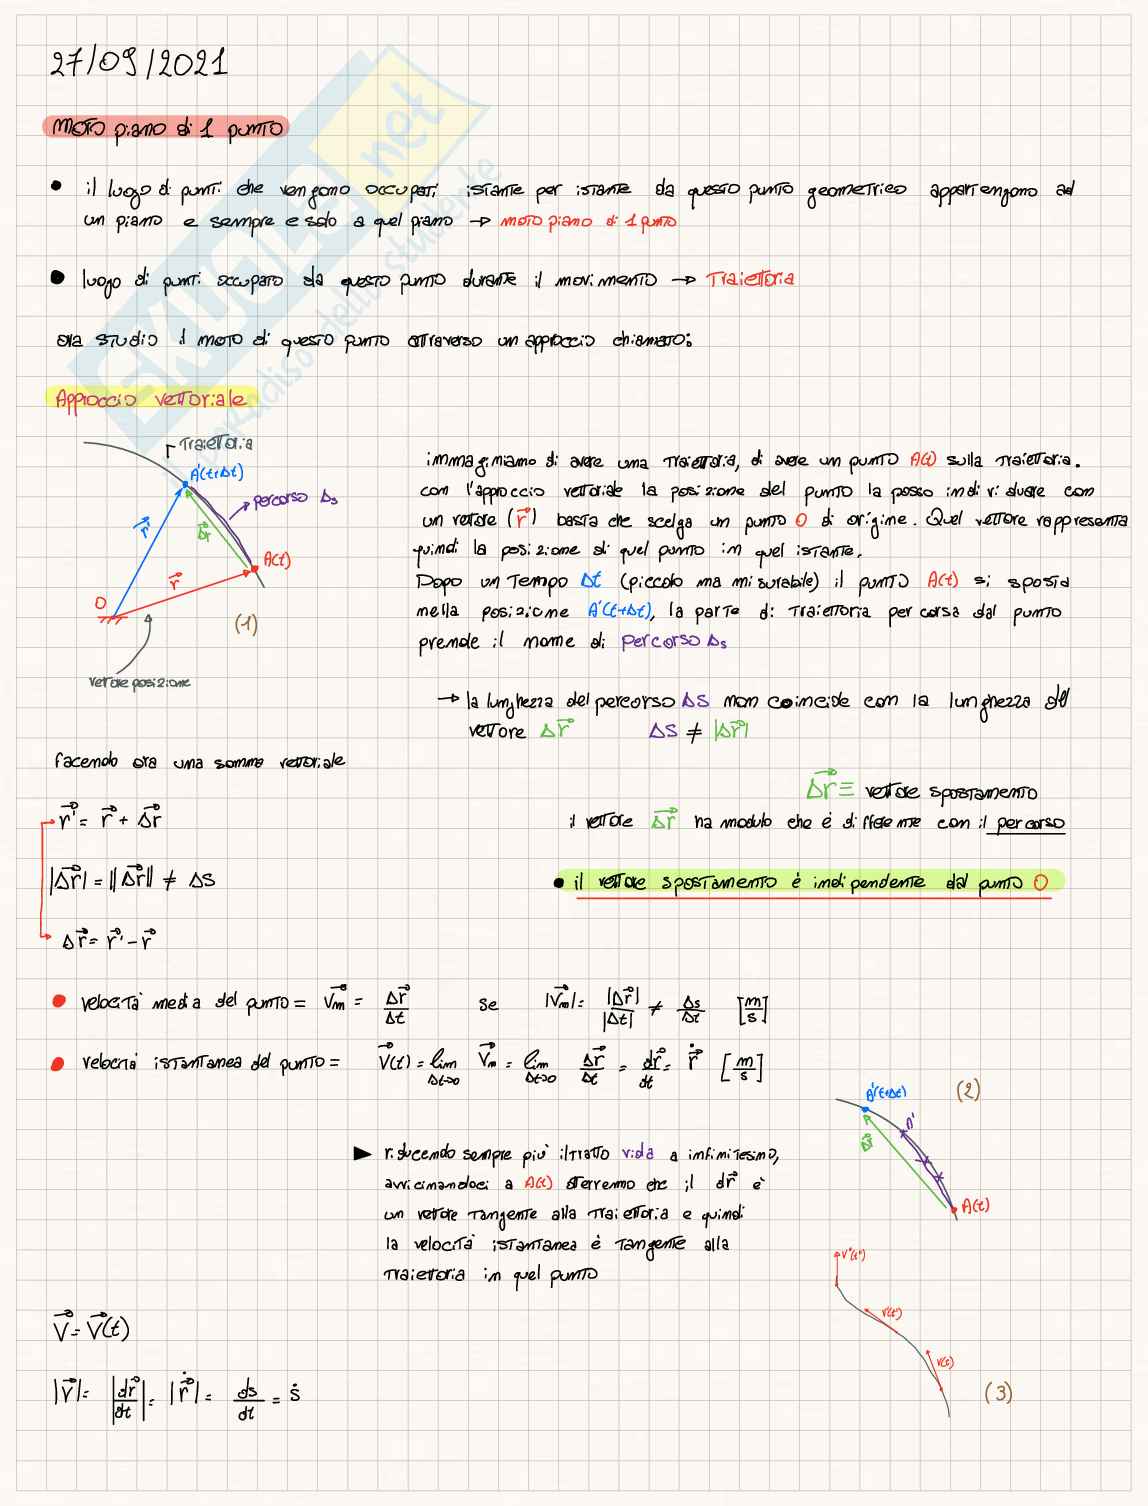 27/09/2021
moto piano di 1 punto
• il luogo di punti che vengono occupati istante per istante da questo punto geometrico appartengono ad
un piano e sempre e solo a quel piano → moto piano di 1 punto
• luogo di punti occupato da questo punto durante il movimento → Traiettoria
ora studio il moto di questo punto attraverso un approccio chiamato:
Approccio vettoriale
Γ Traiettoria
A'(t+Δt)
percorso Δs
r⃗'
Δr⃗
A(t)
r⃗
O
(1)
vettore posizione
immaginiamo di avere una traiettoria, di avere un punto A(t) sulla traiettoria.
con l'approccio vettoriale la posizione del punto la posso individuare con
un vettore (r⃗) basta che scelga un punto O di origine. Quel vettore rappresenta
quindi la posizione di quel punto in quel istante.
Dopo un tempo Δt (piccolo ma misurabile) il punto A(t) si sposta
nella posizione A'(t+Δt), la parte di traiettoria percorsa dal punto
prende il nome di percorso Δs
→ la lunghezza del percorso Δs non coincide con la lunghezza del
vettore Δr⃗ Δs ≠ |Δr⃗|
facendo ora una somma vettoriale
Δr⃗ ≡ vettore spostamento
r⃗' = r⃗ + Δr⃗
il vettore Δr⃗ ha modulo che è differente con il percorso
|Δr⃗| = ||Δr⃗|| ≠ Δs
• il vettore spostamento è indipendente dal punto O
Δr⃗ = r⃗' - r⃗
• velocità media del punto = v⃗m = Δr⃗/Δt se |v⃗m| = |Δr⃗|/|Δt| ≠ Δs/Δt [m/s]
• velocità istantanea del punto = v⃗(t) = lim Δt→0 v⃗m = lim Δt→0 Δr⃗/Δt = dr⃗/dt = ṙ⃗ [m/s]
A'(t+Δt)
(2)
Δr⃗
A(t)
▶ riducendo sempre più il tratto viola a infinitesimo,
avvicinandoci a A(t) otterremo che il dr⃗ è
un vettore tangente alla traiettoria e quindi
la velocità istantanea è tangente alla
traiettoria in quel punto
v''(t'')
v(t')
v(t)
(3)
v⃗ = v⃗(t)
|v⃗| = |dr⃗/dt| = |ṙ⃗| = ds/dt = ṡ
SKUOLA.net